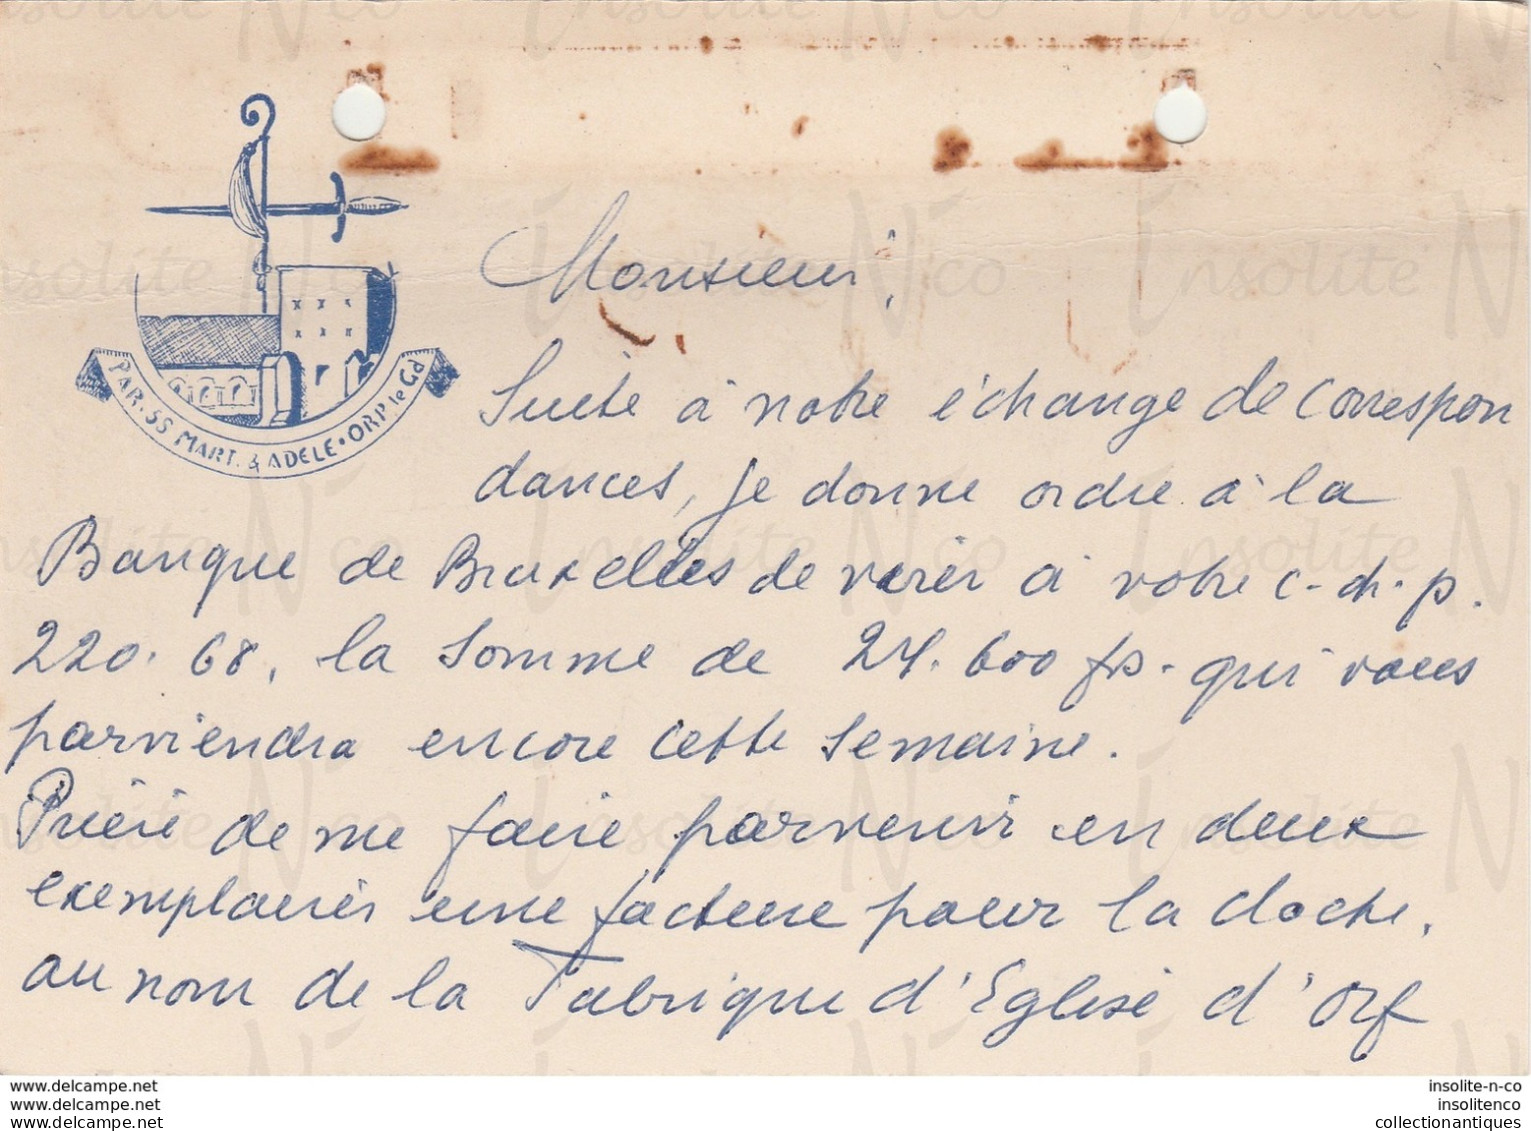 PAR. SS MART. & ADELE • ORP. le Gd
Monsieur,
Suite à notre échange de correspon
dances, je donne ordre à la
Banque de Bruxelles de virer à votre c-ch-p.
220.68, la somme de 24.600 frs - qui vous
parviendra encore cette semaine.
Prière de me faire parvenir en deux
exemplaires une facture pour la cloche,
au nom de la Fabrique d'Eglise d'Orp
www.delcampe.net
www.delcampe.net
www.delcampe.net
insolite-n-co
insolitenco
collectionantiques